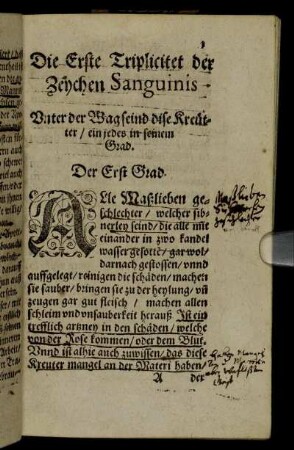 Die Erste Triplicitet der
Zeychen Sanguinis
Vnter der Wag seind dise Kreüt-
ter / ein jedes in seinem
Grad.
Der Erst Grad.
ALle Maßlieben ge-
schlechter / welcher sib-
nerley seind / die alle mit
einander in zwo kandel
wasser gesotte / gar wol
darnach gestossen / vnnd
auffgelegt / reinigen die schäden / machen
sie sauber / bringen sie zu der heylung / vñ
zeugen gar gut fleisch / machen allen
schleim vnd vnsauberkeit herauß Ist ein
trefflich artzney in den schäden / welche
von der Rose kommen / oder dem Blut.
Vnnd ist alhie auch zuwissen / das diese
Kreuter mangel an der Materi haben /
A der